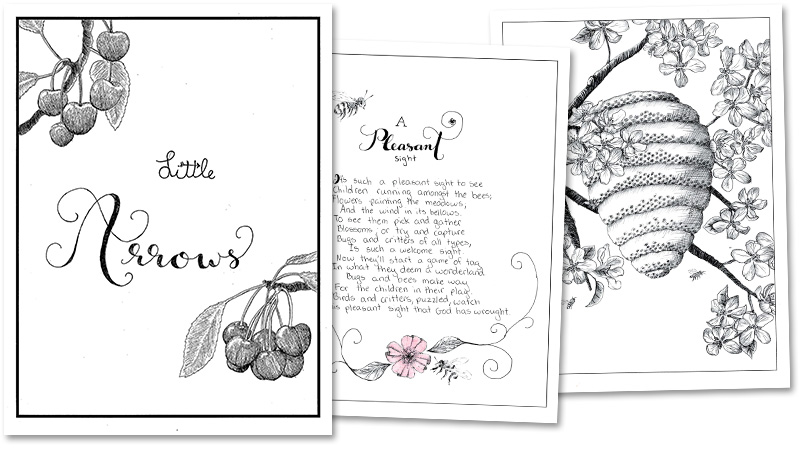 Little
Arrows
A
Pleasant
Sight
is such a pleasant sight to see
Children running amongst the bees;
Flowers painting the meadows,
And the wind in its bellows.
To see them pick and gather
Blossoms, or try and capture
Bugs and critters of all types,
Is such a welcome sight.
Now they'll start a game of tag
In what they deem a wonderland
Bugs and bees make way
For the children in their play.
Birds and critters, puzzled, watch
is pleasant sight that God has wrought.